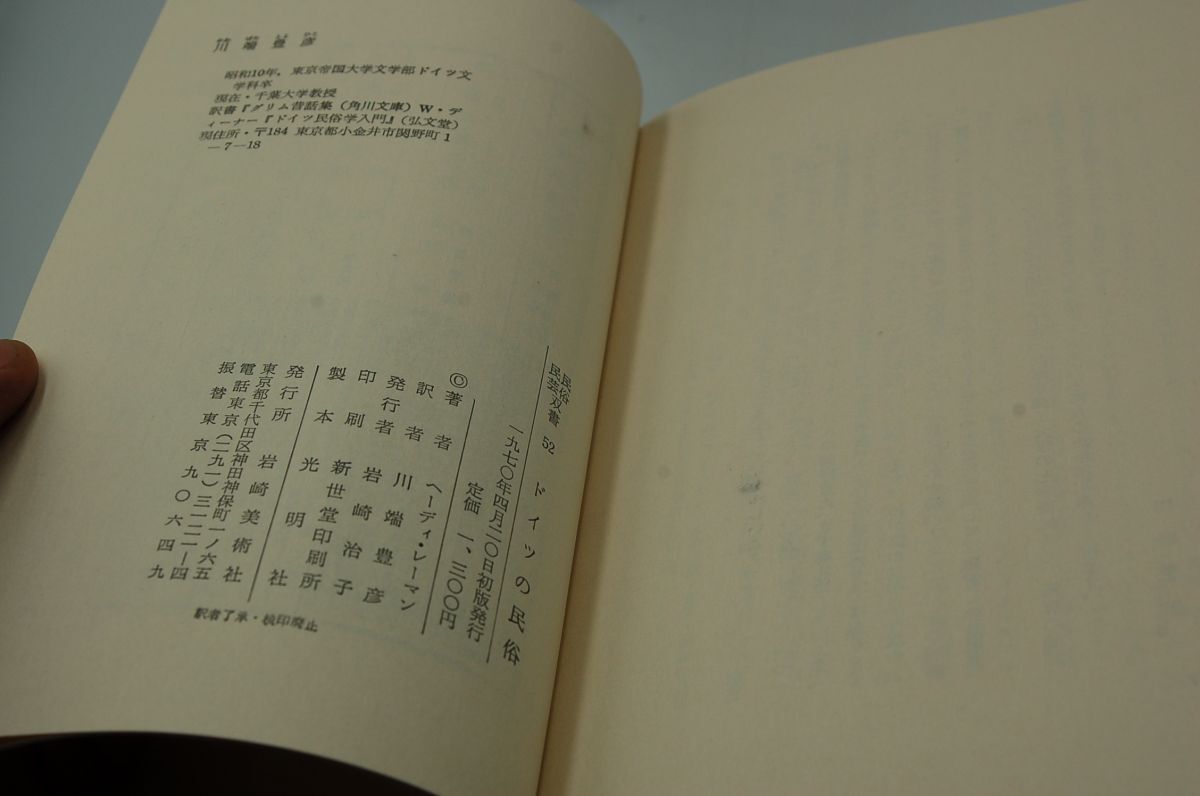 川端豊彦
昭和10年,東京帝国大学文学部ドイツ文
学科卒
現在・千葉大学教授
訳書『グリム昔話集(角川文庫)W・デ
ィーナー『ドイツ民俗学入門』(弘文堂)
現住所・〒184 東京都小金井市関野町1
—7—18
民俗民芸双書 52 ドイツの民俗
一九七〇年四月二〇日初版発行
定価 一・三〇〇円
◎著者 ヘーディ・レーマン
訳者 川端豊彦
発行者 岩崎治子
印刷 新世堂印刷所
製本 光明社
発行所 岩崎美術社
東京都千代田区神田神保町一ノ六五
電話東京(二九一)三一二一—四
振替東京九〇六四九
訳者了承・検印廃止